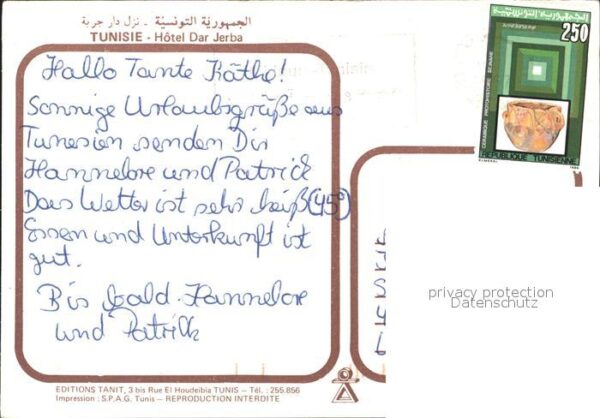 الجمهورية التونسية - نزل دار جربة
TUNISIE - Hôtel Dar Jerba
Hallo Tante Käthe!
Sonnige Urlaubsgrüße aus
Tunesien senden Dir
Hannelore und Patrick
Das Wetter ist sehr heiß (45°)
Essen und Unterkunft ist
gut.
Bis bald. Hannelore
und Patrick
EDITIONS TANIT, 3 bis Rue El Houdeibia TUNIS - Tél. : 255.856
Impression : S.P.A.G. Tunis - REPRODUCTION INTERDITE
الجمهورية التونسية
250
CERAMIQUE PROTOHISTOIRE
REPUBLIQUE TUNISIENNE
privacy protection
Datenschutz